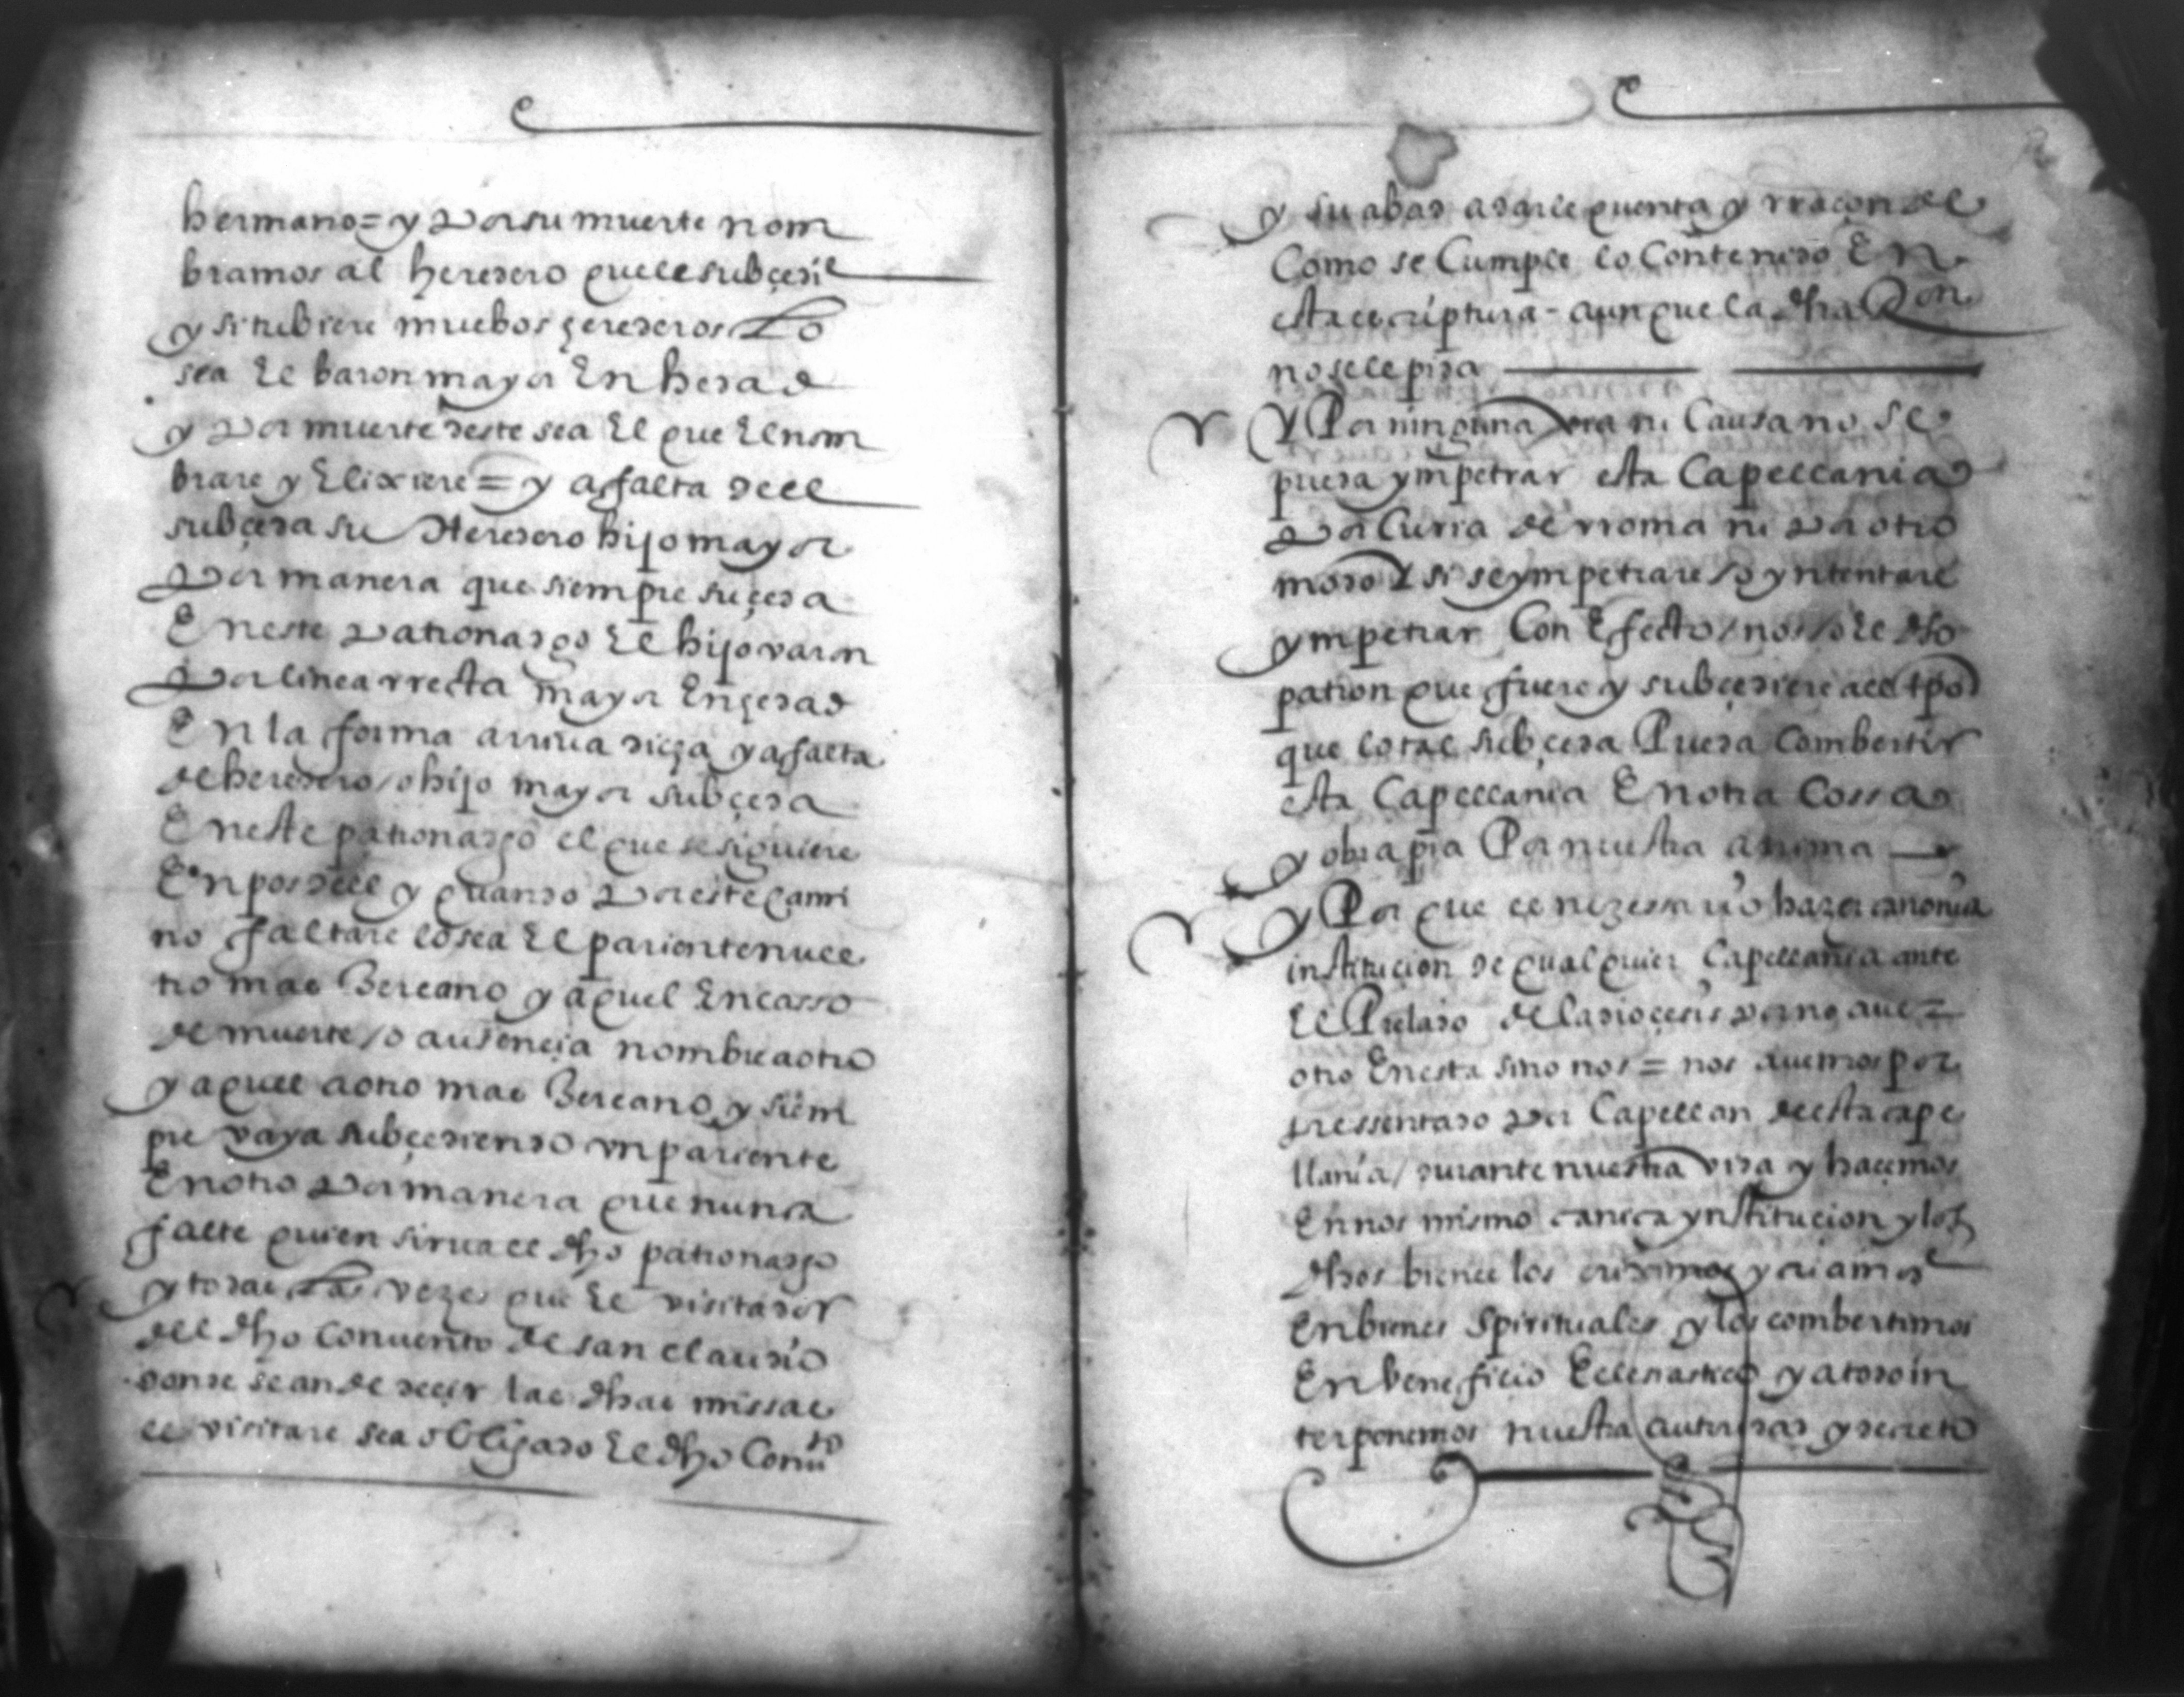 hermano = y por su muerte nom
bramos al heredero que le subçedie
y si tubiere muchos herederos lo
sea el baron mayor en hedad
y por muerte deste sea el que el nom
brare y elixiere = y a falta del
subçeda su heredero hijo mayor
por manera que siempre suçeda
en este patronadgo el hijo varon
por linea rrecta mayor en hedad
en la forma arriua dicha y a falta
de heredero / o hijo mayor subçeda
en este patronadgo el que se siguiere
en pos del y quando por este cami
no faltare lo sea el pariente nues
tro mas çercano y aquel en casso
de muerte / o ausençia nombre a otro
y aquel a otro mas çercano y siem
pre vaya subçediendo vn pariente
en otro por manera que nunca
falte quien sirua el dho patronadgo
y todas las vezes que el visitador
del dho conuento de san claudio
donde se an de deçir las dhas missas
le visitare sea obligado el dho conuto
y su abad a darle quenta y rraçon de
como se cumple lo contenido en
esta escriptura - aunque la dha Ron
no se le pida
Y Por ninguna via ni causa no se
pueda ympetrar esta capellania
por curia de rroma ni por otro
modo y si se ympetrare / o yntentare
ympetrar con efecto / nos / o el dho
patron que fuere y subçediere al tpo
que lo tal subçeda pueda combertir
esta capellania en otra cossa
y obra pia por nuestra anima
y Por que es nezessario hazer canonica
instituçion de qualquier capellania ante
el Prelado de la dioçesis y no aue =
otro en esta sino nos = nos auemos por
pressentado por capellan de esta cape
llania / durante nuestra vida y haçemos
en nos mismo canica ynstituçion y los
dhos bienes los erixirmos y criamos
en bienes spirituales y los combertimos
en beneficio eclesiastico y a todo in
terponemos nuestra autoridad y decreto